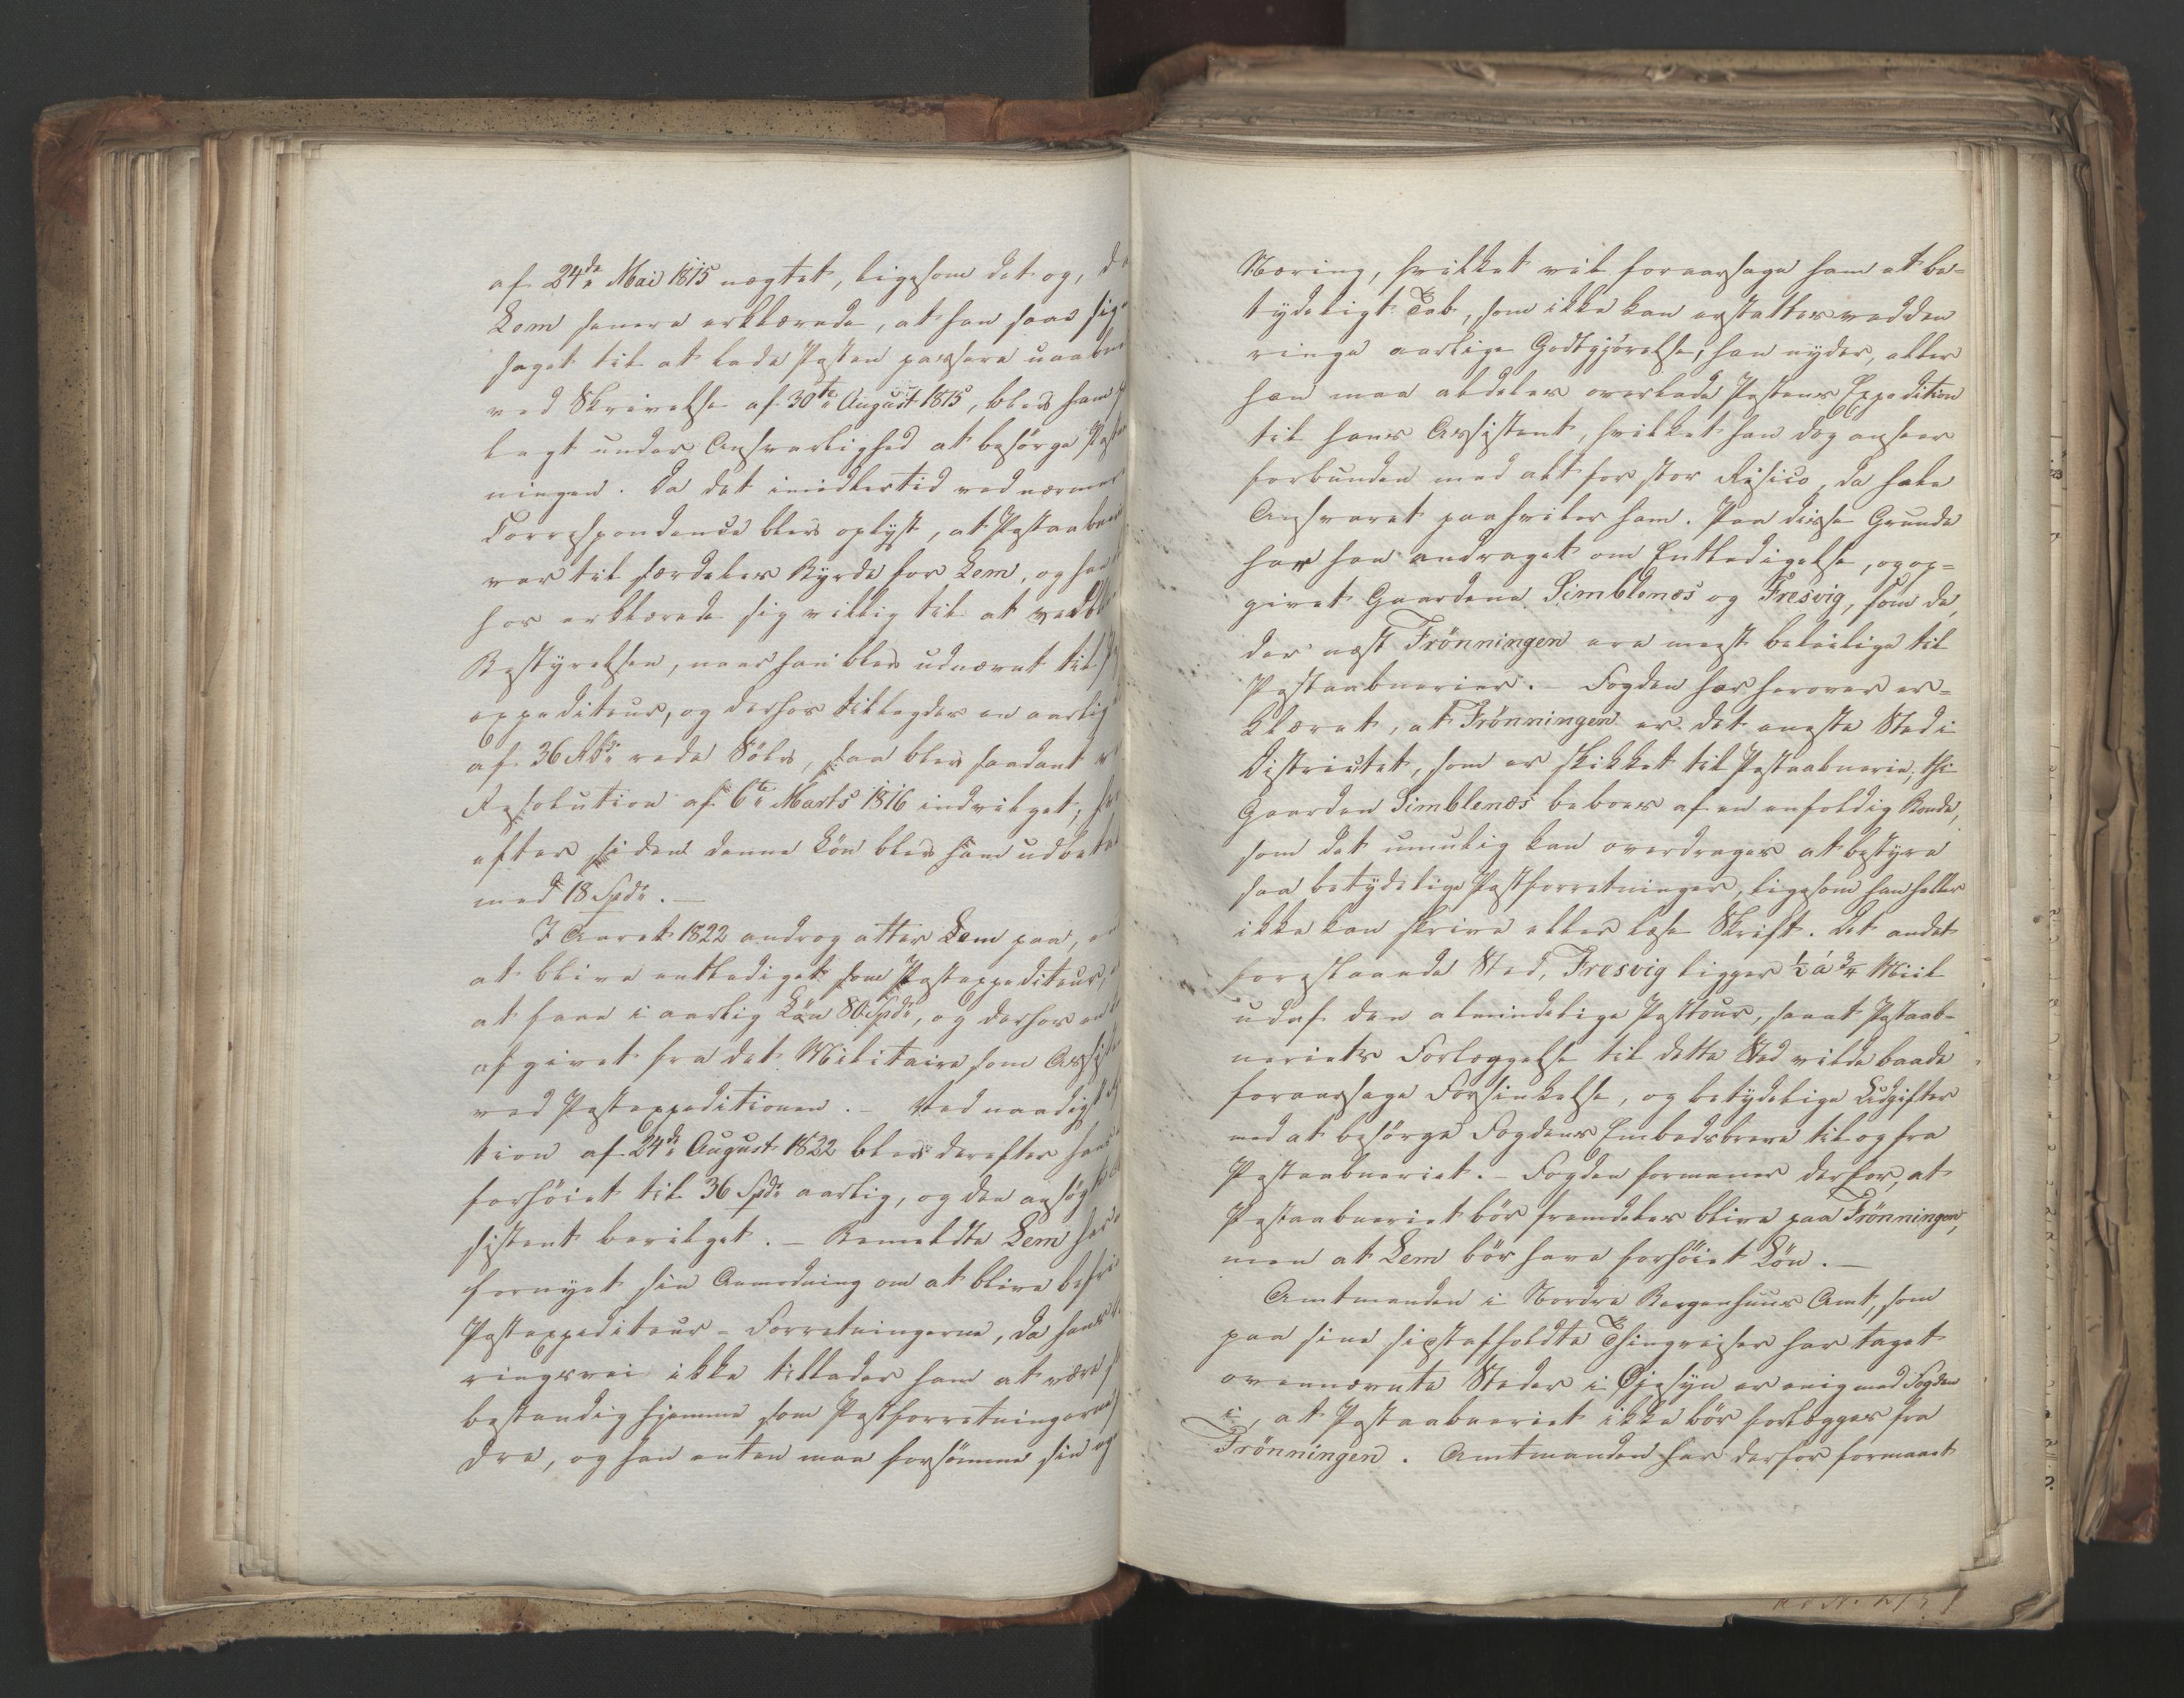 af 24de Mai 1815 nægtet, ligesom det og, da
Lem senere erklærede, at han saae sig
saget til at lade Posten passere uaabn
ved Skrivelse af 30te August 1815, blev ham
lagt under Ansvarlighed at besørge Post
ningen. Da det imidlertid ved nærmere
Correspondence blev oplyst, at Postaabne
var til særdeles Byrde for Lem, og han
hos erklærede sig villig til at vedbl
Bestyrelsen, naar han blev udnævnt til
expediteur, og derfor tillagdes en aarlig
af 36 Rbdr rede Sølv, saa blev saadant
Resolution af 6te Marts 1816 indvilget, hvor
efter siden denne Løn blev ham udbetal
med 18 Spdr. —
I Aaret 1822 androg atter Lem paa,
at blive entlediget som Postexpediteur,
at faae i aarlig Løn 80 Spdr, og derhos en
afgivet fra det Militaire som Assiste
ved Postexpeditionen. — Ved naadigst
tion af 24de August 1822 blev derefter hans
forhøiet til 36 Spdr aarlig, og den ansøgte
sistent bevilget. — Bemeldte Lem har
fornyet sin Anmodning om at blive befri
Postexpediteur-Forretningerne, da hans
ringsvei ikke tillader ham at være
bestandig hjemme som Postforretningerne
dre, og han enten maa forsømme sin
Næring, hvilket vil foraarsage ham et be=
tydeligt Tab, som ikke kan erstattes ved den
ringe aarlige Godtgjørelse, han nyder, eller
han maa aldeles overlade Postens Expedition
til hans Assistent, hvilket han dog anseer
forbunden med alt for stor Risico, da hele
Ansvaret paahviler ham. Paa disse Grunde
har han andraget om Entledigelse, og op=
givet Gaardene Simblenæs og Fresvig, som de,
der næst Frønningen ere meest beleilige til
Postaabnerier. — Fogden har herover er=
klæret, at Frønningen er det eneste Sted i
Districtet, som er skikket til Postaabnerie, thi
Gaarden Simblenæs beboes af en enfoldig Bonde,
som det umulig kan overdrages at bestyre
saa betydelige Postforretninger, ligesom han heller
ikke kan skrive eller læse Skrift. Det andet
foreslaaede Sted, Fresvig ligger ½ á ¾ Miil
udaf den almindelige Posttour, samt Postaab=
neriets Forlæggelse til dette Sted vilde baade
foraarsage Forsinkelse, og betydelige Udgifter
med at besørge Fogdens Embedsbreve til og fra
Postaabneriet. — Fogden formener derfor, at
Postaabneriet bør fremdeles blive paa Frønningen,
men at Lem bør have forhøiet Løn. —
Amtmanden i Nordre Bergenhuus Amt, som
paa sine sidstafholdte Thingreiser har taget
ovennævnte Steder i Øjesyn er enig med Fogden
i, at Postaabneriet ikke bør forlægges fra
Frønningen. Amtmanden har derfor formeent